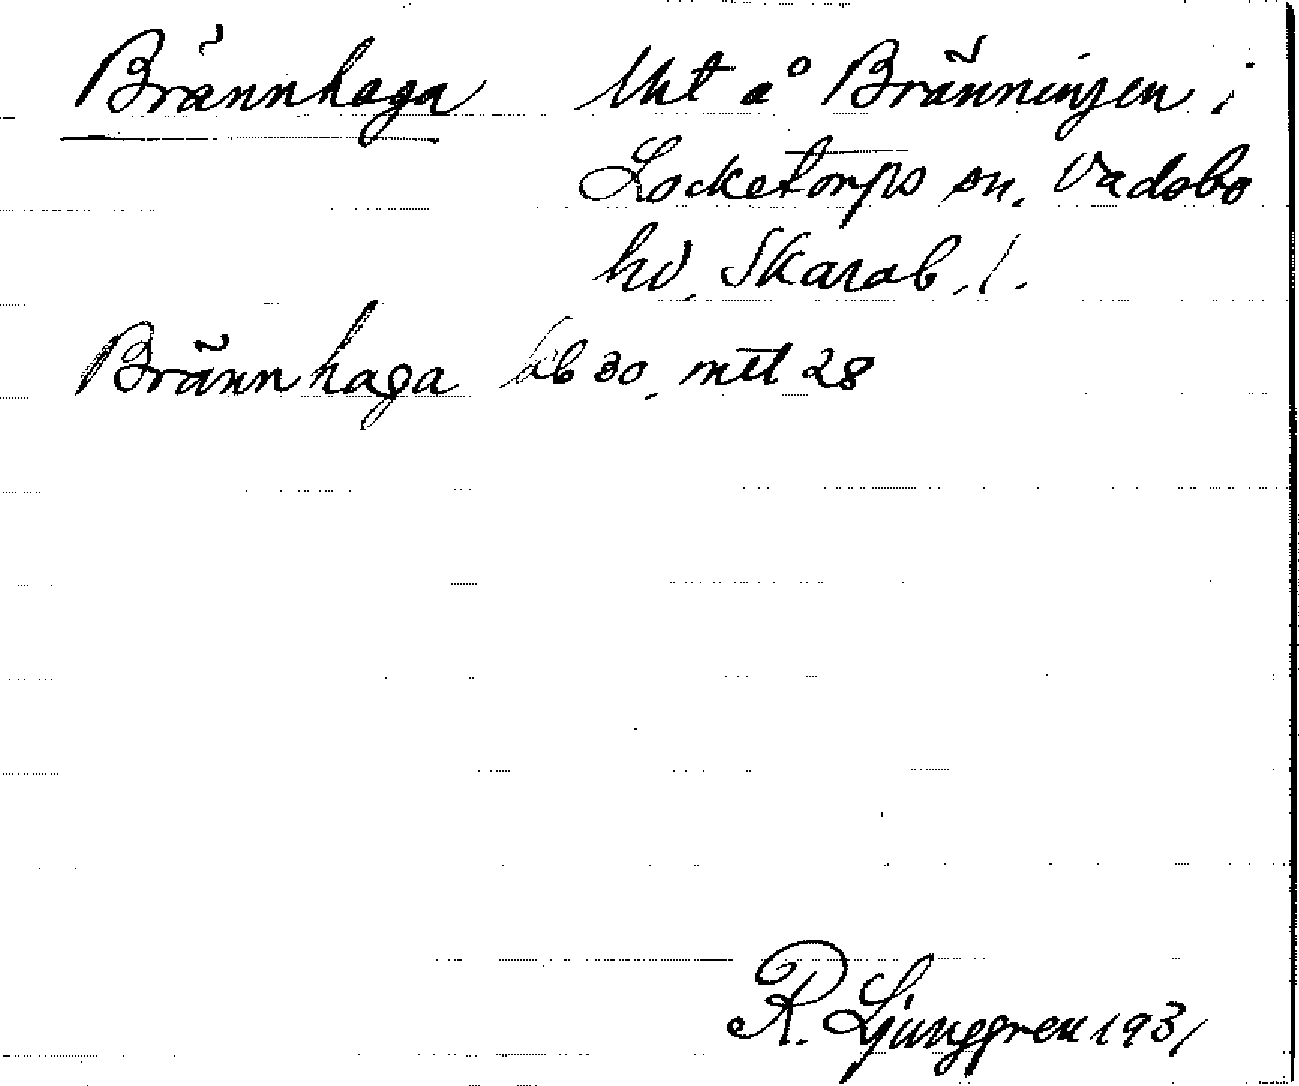 Brännhaga Uht å Bränningen i
Locketorps sn. Vadsbo
hd. Skarab. l.
Brännhaga hb 30. mtl 28
R. Ljunggren 1931